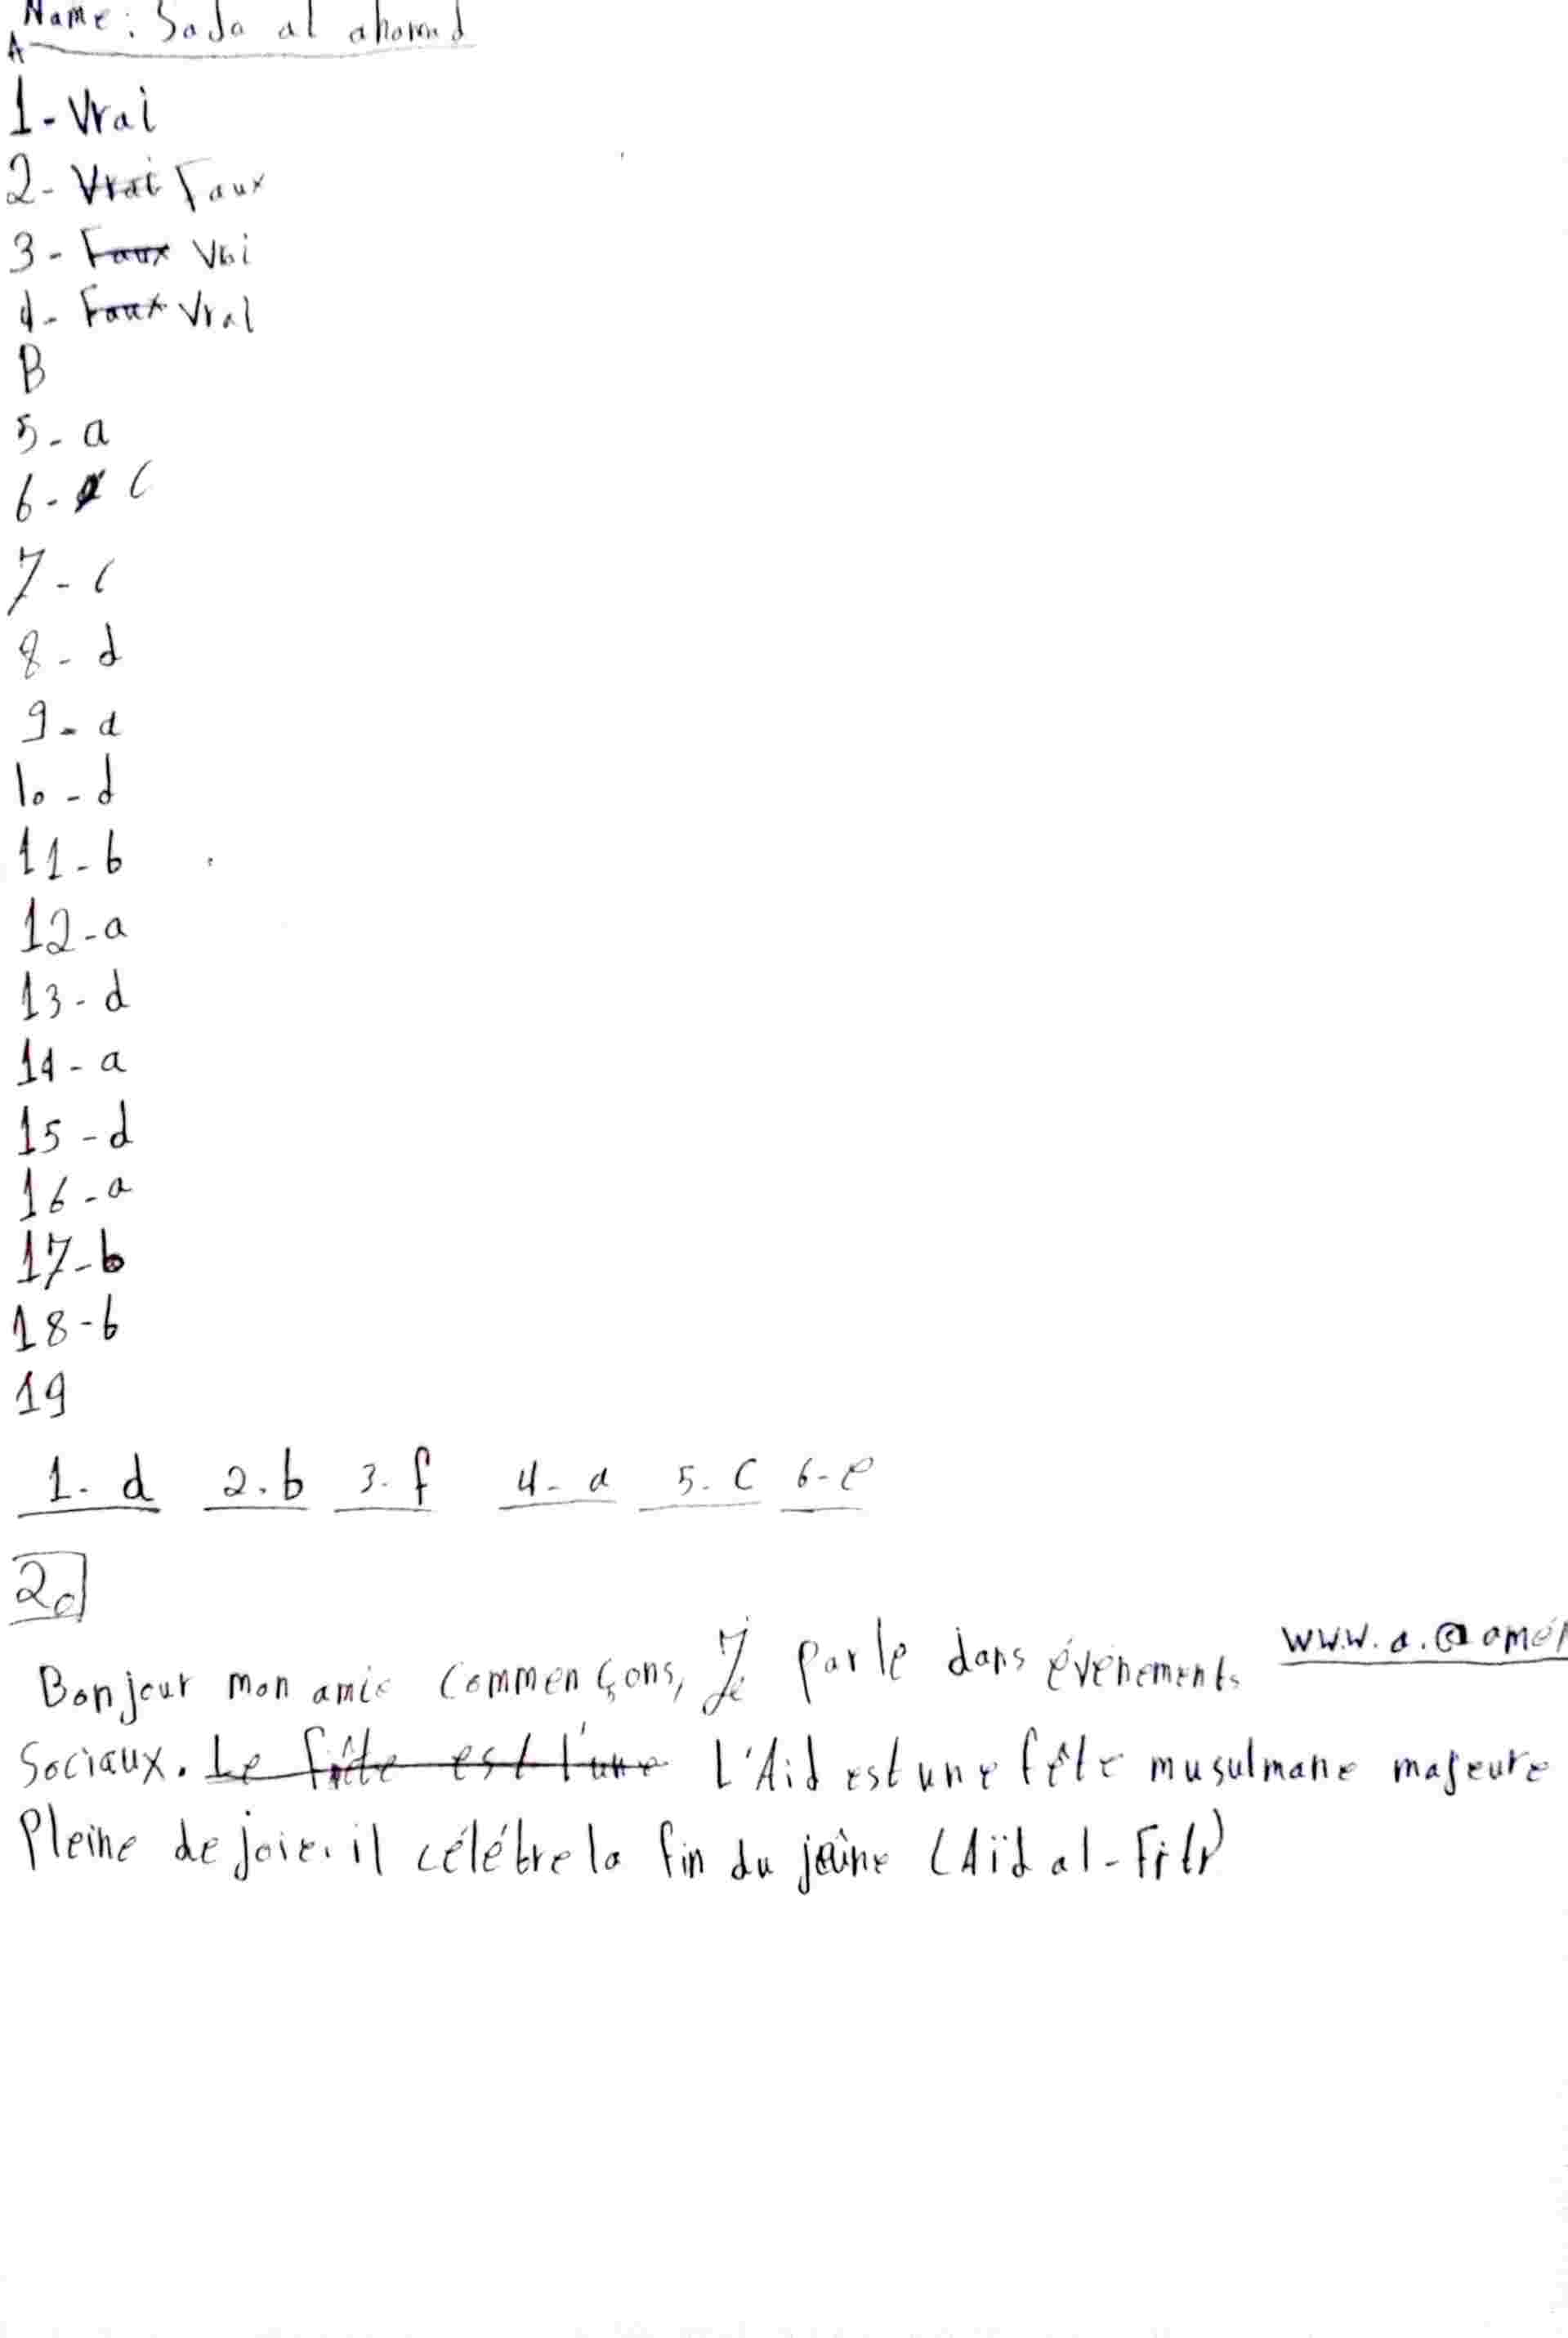 Name: Sada al ahomd
A
1- Vrai
2- Vrai Faux
3- Faux Vri
4- Faux Vral
B
5- a
6- c
7- c
8- d
9- d
10- d
11- b
12- a
13- d
14- a
15- d
16- a
17- b
18- b
19
1- d 2. b 3- f 4- a 5- c 6- e
20
www.a.@amél
Bonjour mon amie Commençons, Je parle dans événements
Sociaux. Le fête est l'une L'Aid est une fête musulmane majeure
Pleine de joie. il célébre la fin du jeûne (Aïd al-Fitr)